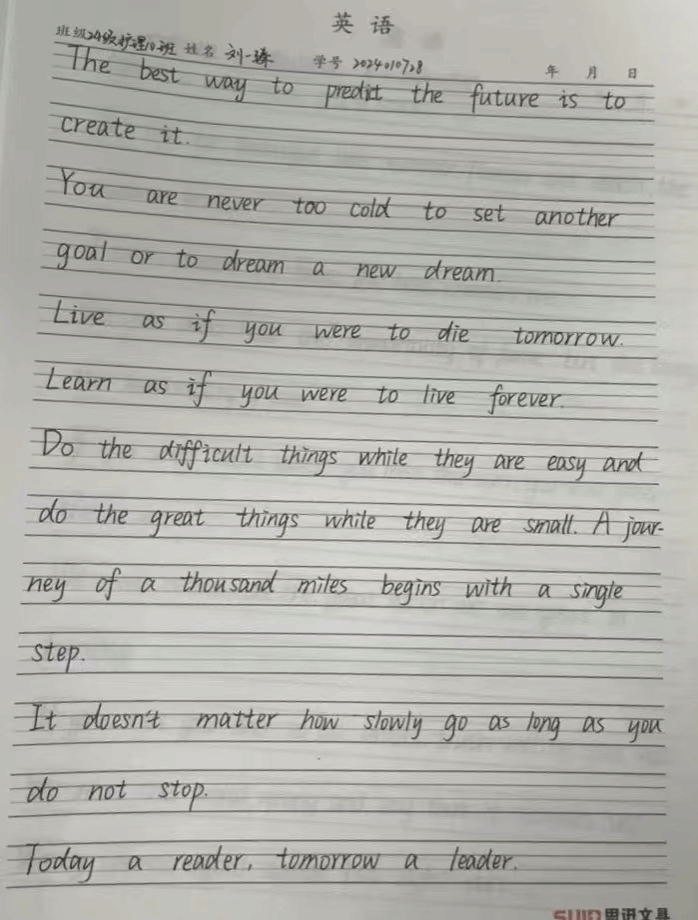 英语
班级24级护理10班 姓名 刘一臻 学号 2024010728 年 月 日
The best way to predict the future is to
create it.
You are never too cold to set another
goal or to dream a new dream.
Live as if you were to die tomorrow.
Learn as if you were to live forever.
Do the difficult things while they are easy and
do the great things while they are small. A jour-
ney of a thousand miles begins with a single
step.
It doesn't matter how slowly go as long as you
do not stop.
Today a reader, tomorrow a leader.
思迅文具